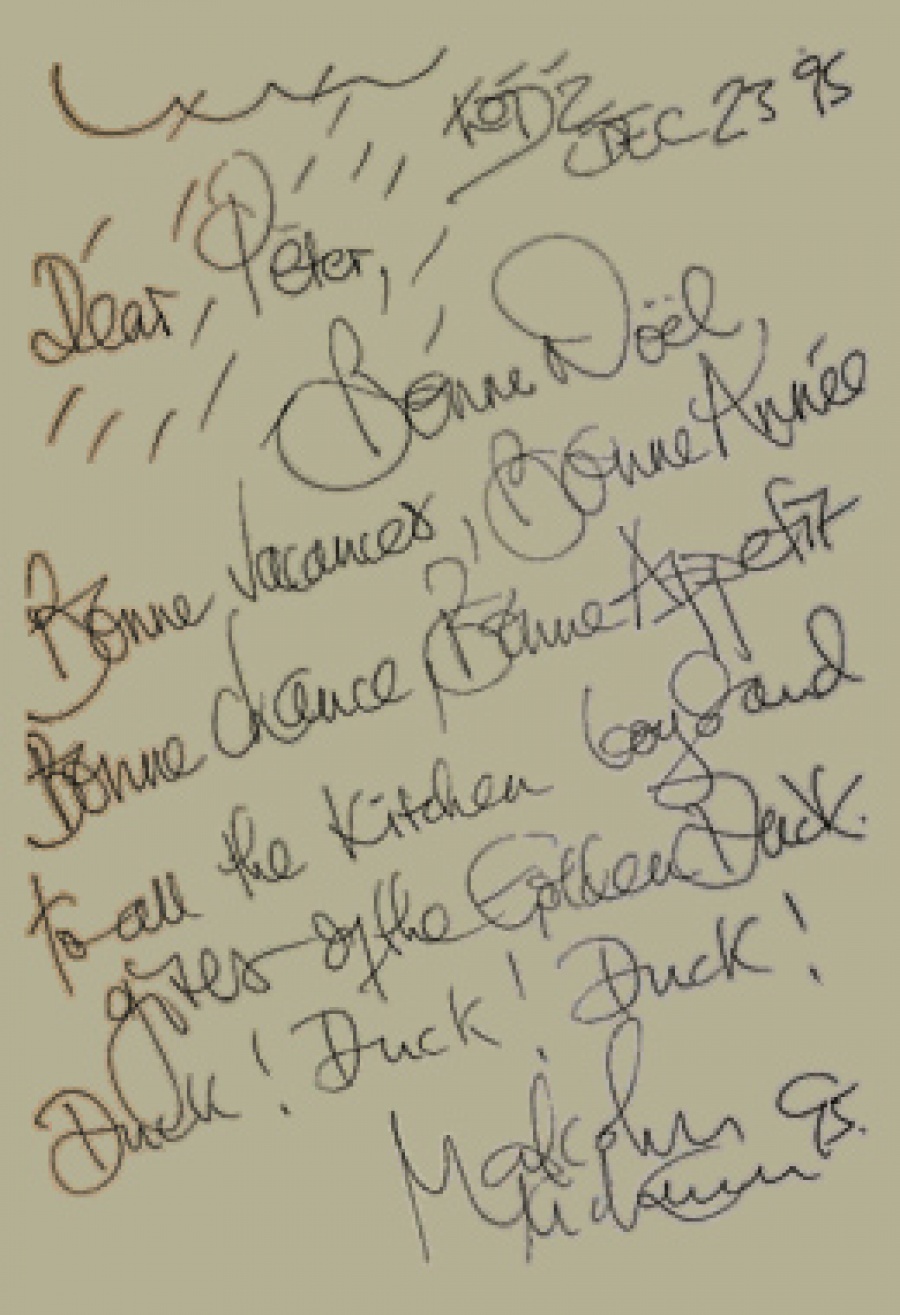 DEC 23 95
Dear Peter,
Bonne Nöel,
Bonne Vacances, Bonne Année
Bonne chance, Bonne Appetit
to all the Kitchen boys and
of the Golden Duck.
Duck! Duck! Duck!
Malcolm 95.